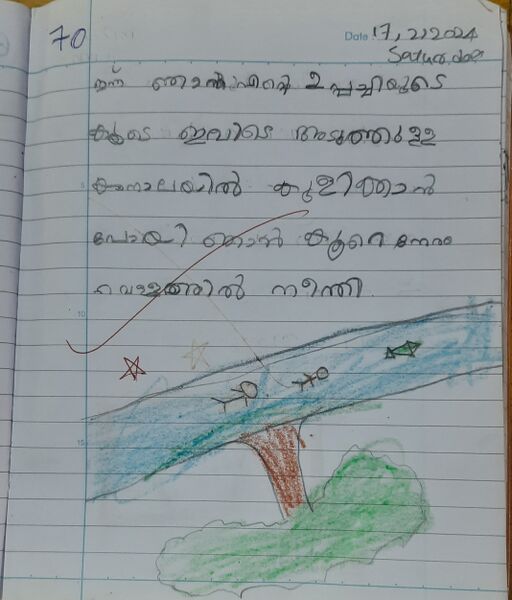 70
Date 17, 2, 2024
Saturday
ഇന്ന് ഞാൻ എന്റെ ഉപ്പച്ചിയുടെ
കൂടെ ഇവിടെ അടുത്തുള്ള
കനാലയിൽ കുളിത്താൻ
പോയി ഞാൻ കുറെ നേരം
വെള്ളത്തിൽ നീന്തി.